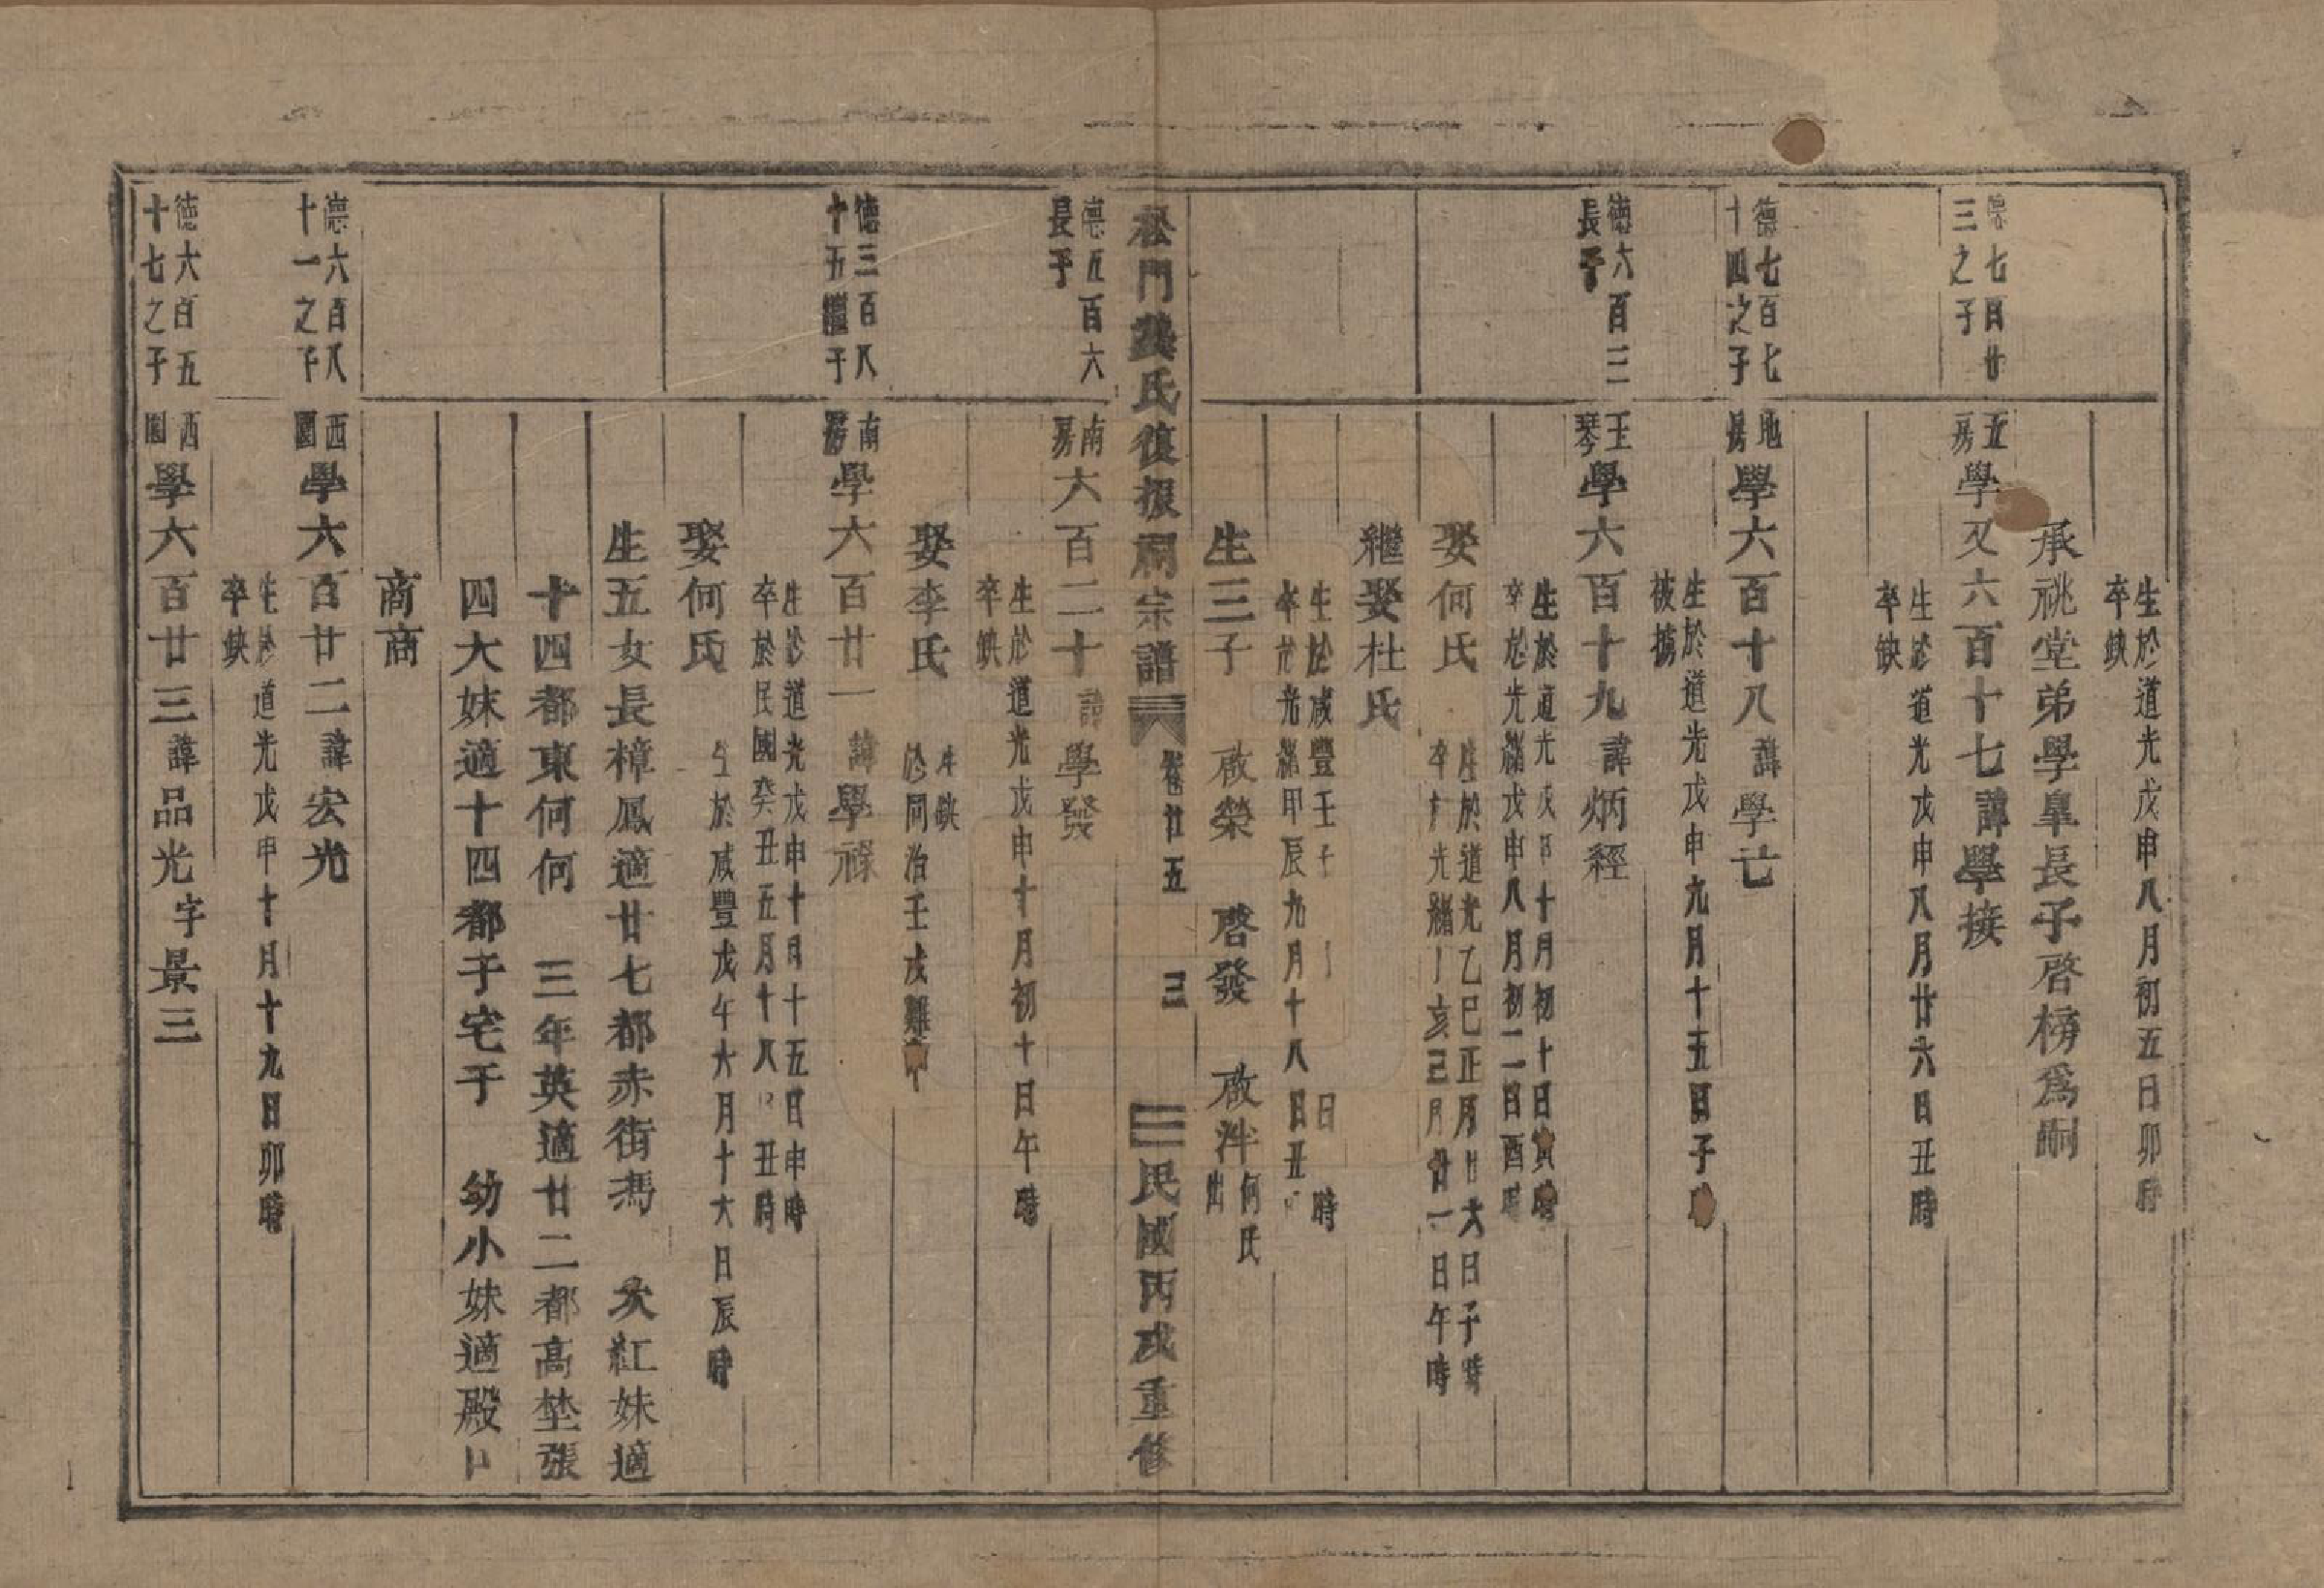 生於道光戊申八月初五日卯時
卒缺
承祧堂弟學皐長子啓榜爲嗣
德七百廿
三之子
五
房
學又六百十七諱學接
生於道光戊申八月廿六日丑時
卒缺
德七百七
十四之子
地
房
學六百十八諱學亡
生於道光戊申九月十五日子時
被擄
德六百三
長子
玉
琴
學六百十九諱炳經
生於道光戊申十月初十日寅時
卒於光緒戊申八月初二日酉時
娶何氏
生於道光乙巳正月廿六日子時
卒於光緒丁亥三月廿一日午時
繼娶杜氏
生於咸豐壬子 日 時
卒於光緒甲辰九月十八日丑
生三子 啟榮 啓發 啟泮 何氏
出
松門龔氏復振祠宗譜 卷廿五 三 民國丙戌重修
德五百六
長子
南
房
六百二十諱學發
生於道光戊申十月初十日午時
卒缺
娶李氏
生缺
於同治壬戌難
德三百八
十五繼子
南
房
學六百廿一諱學祿
生於道光戊申十月十五日申時
卒於民國癸丑五月十八 丑時
娶何氏
生於咸豐戊午六月十六日辰時
生五女長樟鳳適廿七都赤街馮 次紅妹適
十四都東何何 三年英適廿二都高埜張
四大妹適十四都于宅于 幼小妹適殿口
商商
德六百八
十一之子
西
園
學六百廿二諱宏光
生於道光戊申十月十九日卯時
卒缺
德六百五
十七之子
西
園
學六百廿三諱品光字景三